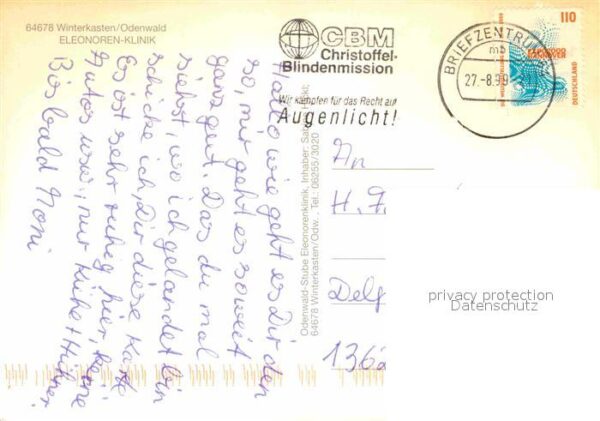 64678 Winterkasten/Odenwald
ELEONOREN-KLINIK
Hallo wie geht es Dir denn
so, mir geht es soweit
ganz gut. Das du mal
siehst, wo ich gelandet bin
schicke ich, Dir diese Karte
Es ist sehr ruhig hier, keine
Autos usw., nur Kühe + Hühner.
Bis bald Moni
Odenwald-Stube Eleonorenklinik, Inhaber:
64678 Winterkasten/Odw. . Tel.: 06255/3020
CBM
Christoffel-
Blindenmission
Wir kämpfen für das Recht auf
Augenlicht!
BRIEFZENTRUM
mb
27.-8.99
110
HANNOVER
DEUTSCHLAND
An
H.
Delg
1362
privacy protection
Datenschutz